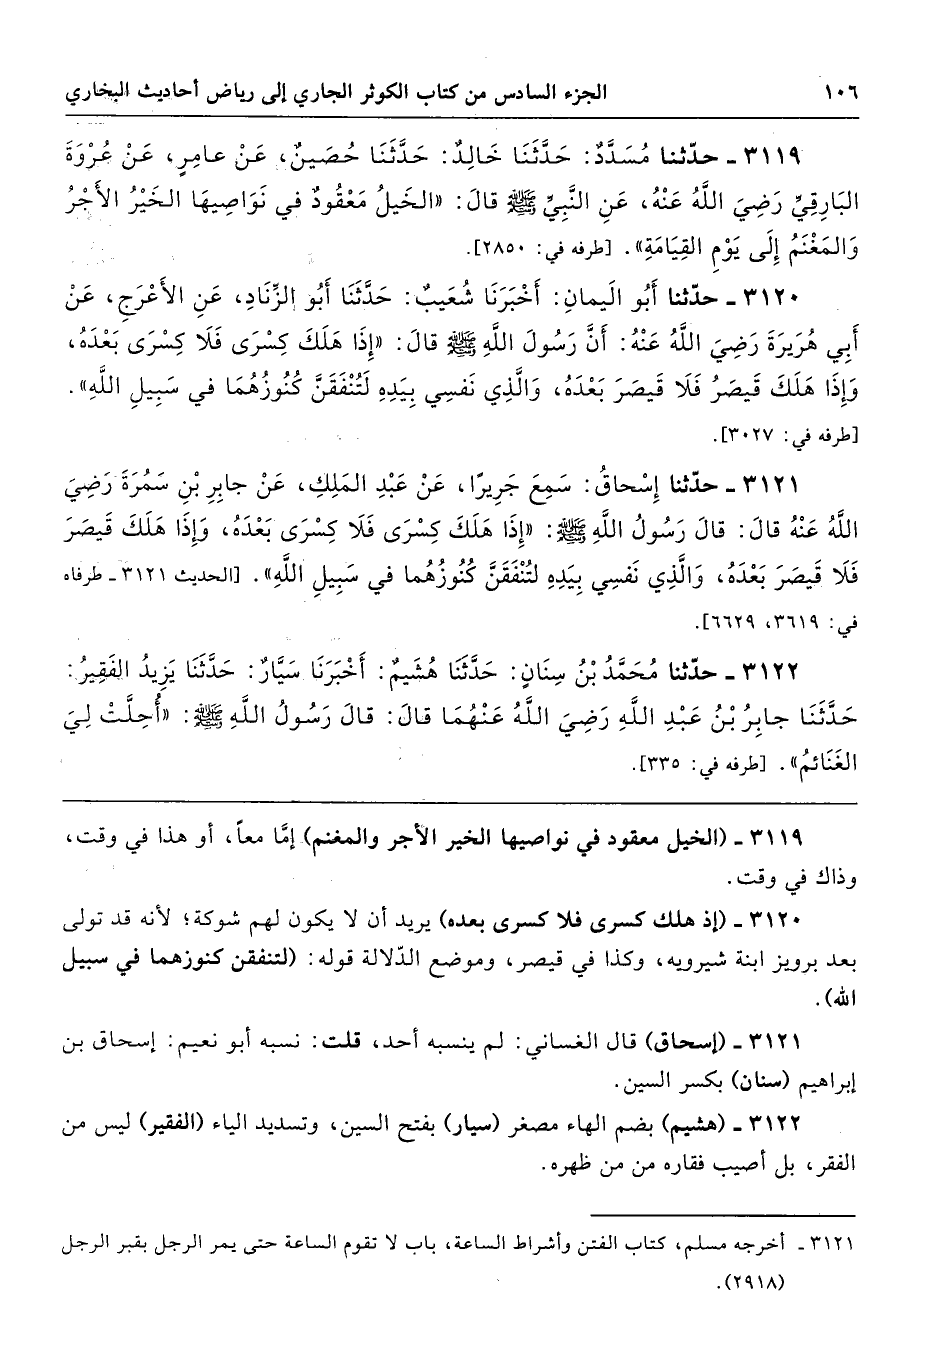 ١٠٦ الجزء السادس من كتاب الكوثر الجاري إلى رياض أحاديث البخاري
٣١١٩ ـ حدّثنا مُسَدَّدٌ: حَدَّثَنَا خَالِدٌ: حَدَّثَنَا حُصَينٌ، عَنْ عامِرٍ، عَنْ عُرْوَةَ
البَارِقِيِّ رَضِيَ اللَّهُ عَنْهُ، عَنِ النَّبِيِّ ﷺ قالَ: «الخَيلُ مَعْقُودٌ في نَوَاصِيهَا الخَيْرُ الأَجْرُ
وَالمَغْنَمُ إِلَى يَوْمِ القِيَامَةِ». [طرفه في: ٢٨٥٠].
٣١٢٠ ـ حدّثنا أَبُو اليمانِ: أَخْبَرَنَا شُعَيبٌ: حَدَّثَنَا أَبُو الزِّنَادِ، عَنِ الأَعْرَجِ، عَنْ
أَبِي هُرَيرَةَ رَضِيَ اللَّهُ عَنْهُ: أَنَّ رَسُولَ اللَّهِ ﷺ قالَ: «إِذَا هَلَكَ كِسْرَى فَلَا كِسْرَى بَعْدَهُ،
وَإِذَا هَلَكَ قَيصَرُ فَلَا قَيصَرَ بَعْدَهُ، وَالَّذِي نَفسِي بِيَدِهِ لَتُنْفَقَنَّ كُنُوزُهُمَا في سَبِيلِ اللَّهِ».
[طرفه في: ٣٠٢٧].
٣١٢١ ـ حدّثنا إِسْحاقُ: سَمِعَ جَرِيرًا، عَنْ عَبْدِ المَلِكِ، عَنْ جابِرِ بْنِ سَمُرَةَ رَضِيَ
اللَّهُ عَنْهُ قالَ: قالَ رَسُولُ اللَّهِ ﷺ: «إِذَا هَلَكَ كِسْرَى فَلَا كِسْرَى بَعْدَهُ، وَإِذَا هَلَكَ قَيصَرَ
فَلَا قَيصَرَ بَعْدَهُ، وَالَّذِي نَفسِي بِيَدِهِ لتُنْفَقَنَّ كُنُوزُهُما في سَبِيلِ اللَّهِ». [الحديث ٣١٢١ ـ طرفاه
في: ٣٦١٩، ٦٦٢٩].
٣١٢٢ ـ حدّثنا مُحَمَّدُ بْنُ سِنَانٍ: حَدَّثَنَا هُشَيمٌ: أَخْبَرَنَا سَيَّارٌ: حَدَّثَنَا يَزِيدُ الفَقِيرُ:
حَدَّثَنَا جابِرُ بْنُ عَبْدِ اللَّهِ رَضِيَ اللَّهُ عَنْهُمَا قالَ: قالَ رَسُولُ اللَّهِ ﷺ: «أُحِلَّتْ لِيَ
الغَنَائمُ». [طرفه في: ٣٣٥].
٣١١٩ ـ (الخيل معقود في نواصيها الخير الأجر والمغنم) إمَّا معاً، أو هذا في وقت،
وذاك في وقت.
٣١٢٠ ـ (إذ هلك كسرى فلا كسرى بعده) يريد أن لا يكون لهم شوكة؛ لأنه قد تولى
بعد برويز ابنة شيرويه، وكذا في قيصر، وموضع الدّلالة قوله: (لتنفقن كنوزهما في سبيل
الله).
٣١٢١ ـ (إسحاق) قال الغساني: لم ينسبه أحد، قلت: نسبه أبو نعيم: إسحاق بن
إبراهيم (سنان) بكسر السين.
٣١٢٢ ـ (هشيم) بضم الهاء مصغر (سيار) بفتح السين، وتسديد الياء (الفقير) ليس من
الفقر، بل أصيب فقاره من من ظهره.
٣١٢١ ـ أخرجه مسلم، كتاب الفتن وأشراط الساعة، باب لا تقوم الساعة حتى يمر الرجل بقبر الرجل
(٢٩١٨).